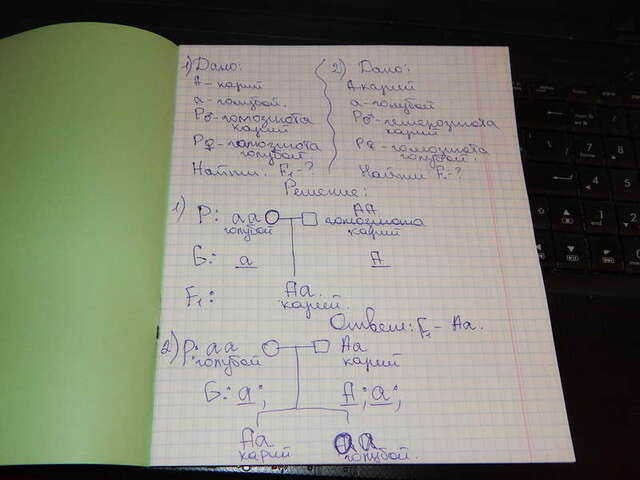 1) Дано:
А - карий
а - голубой.
Р♂ - гомозигота
карий
Р♀ - гомозигота
голубой
Найти: F₁ - ?
2) Дано:
А - карий
а - голубой
Р♂ - гетерозигота
карий
Р♀ - гомозигота
голубой.
Найти F₁ - ?
Решение:
1) Р: аа АА
голубой гомозигота
карий
G: а А
F₁: Аа.
карий.
Ответ: F₁ - Аа.
2) Р: аа Аа
голубой карий
G: а; А; а;
Аа аа
карий голубой.